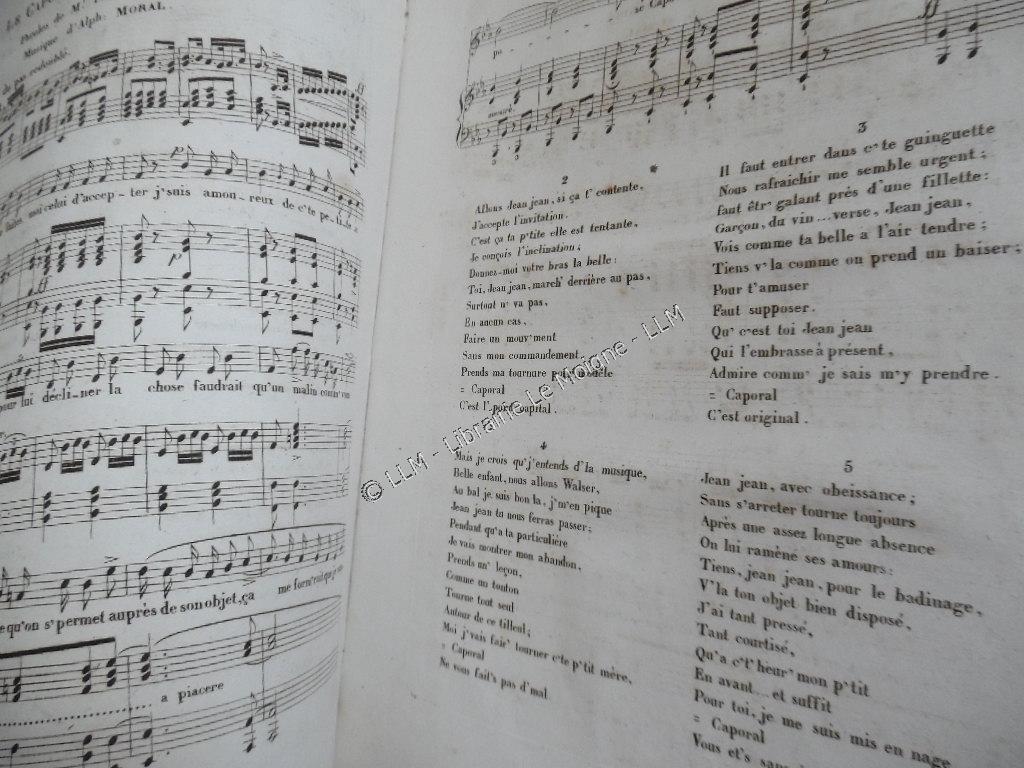 LE CAPO
Paroles de Mr
Musique d'Alph: MORAL.
moi celui d'accep - ter j'suis amou - reux de c'te pe - ti
pour lui décli - ner la chose faudrait qu'un malin comm'
qu'on s'permet auprès de son objet, ça me
a piacere
po
ff
2
Allons Jean jean, si ça t' contente,
J'accepte l'invitation.
C'est ça ta p'tite elle est tentante,
Je conçois l'inclination;
Donnez-moi votre bras la belle:
Toi, Jean jean, march' derrière au pas,
Surtout n' va pas,
En aucun cas,
Faire un mouv'ment
Sans mon commandement
Prends ma tournure
= Caporal
C'est l' capital.
3
Il faut entrer dans c'te guinguette
Nous rafraichir me semble urgent;
faut êtr' galant près d'une fillette:
Garçon, du vin... verse, Jean jean,
Vois comme ta belle a l'air tendre;
Tiens v'la comme on prend un baiser;
Pour t'amuser
Faut supposer.
Qu' c'est toi Jean jean
Qui l'embrasse à présent,
Admire comm' je sais m'y prendre.
= Caporal
C'est original.
4
Mais je crois qu'j'entends d'la musique,
Belle enfant, nous allons Walser,
Au bal je suis bon la, j'm'en pique
Jean jean tu nous ferras passer;
Pendant qu'ta particulière
Je vais montrer mon abandon,
Prends un' leçon,
Comme un tonton
Tourne tout seul
Autour de ce tilleul;
Moi j'vais fair' tourner c'te p'tit mère,
= Caporal
Ne vous fait's pas d'mal
5
Jean jean, avec obeissance;
Sans s'arreter tourne toujours
Après une assez longue absence
On lui ramène ses amours:
Tiens, jean jean, pour le badinage,
V'la ton objet bien disposé,
J'ai tant pressé,
Tant courtisé,
Qu'a c't' heur' mon p'tit
En avant... et suffit
Pour toi, je me suis mis en nage
= Caporal
Vous et's
© LLM - Librairie Le Moigne - LLM